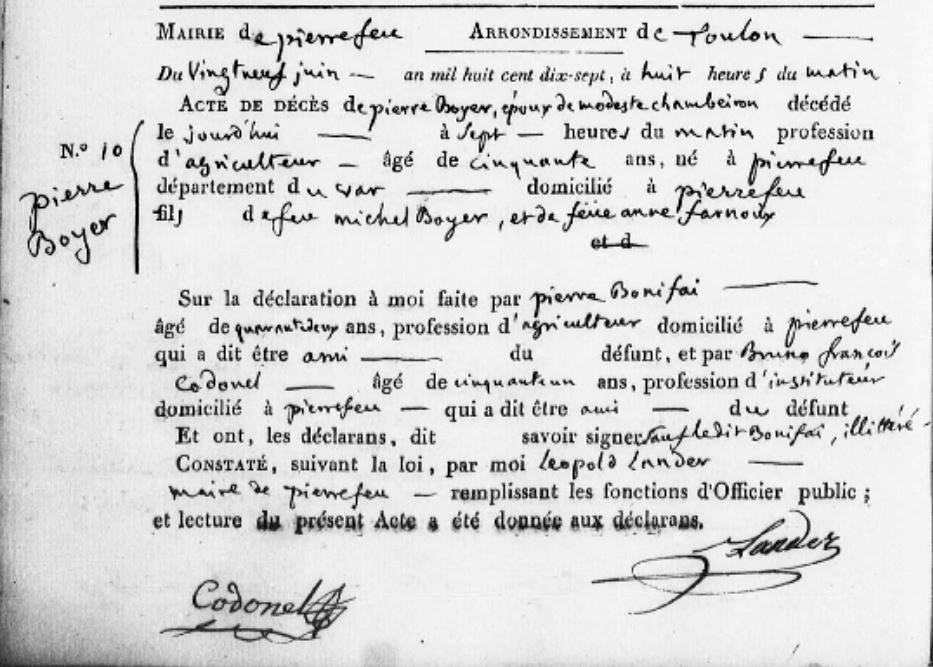 MAIRIE de pierrefeu ARRONDISSEMENT de Toulon
Du Vingt neuf juin — an mil huit cent dix-sept, à huit heures du matin
ACTE DE DÉCÈS de pierre Boyer, époux de modeste chambeiron décédé
le jourd'hui — à Sept — heures du matin profession
d'agriculteur — âgé de cinquante ans, né à pierrefeu
département du var — domicilié à pierrefeu
fils de feu michel Boyer, et de feüe anne farnoux
et d
N.º 10
pierre
Boyer
Sur la déclaration à moi faite par pierre Bonifai —
âgé de quarantideux ans, profession d'agriculteur domicilié à pierrefeu
qui a dit être ami — du défunt, et par Bruno françois
Codonel — âgé de cinquanteun ans, profession d'instituteur
domicilié à pierrefeu — qui a dit être ami — du défunt
Et ont, les déclarans, dit savoir signer Sauf ledit Bonifai, illittéré -
CONSTATÉ, suivant la loi, par moi Leopold Lander —
maire de pierrefeu — remplissant les fonctions d'Officier public ;
et lecture du présent Acte a été donnée aux déclarans.
Lander
Codonel